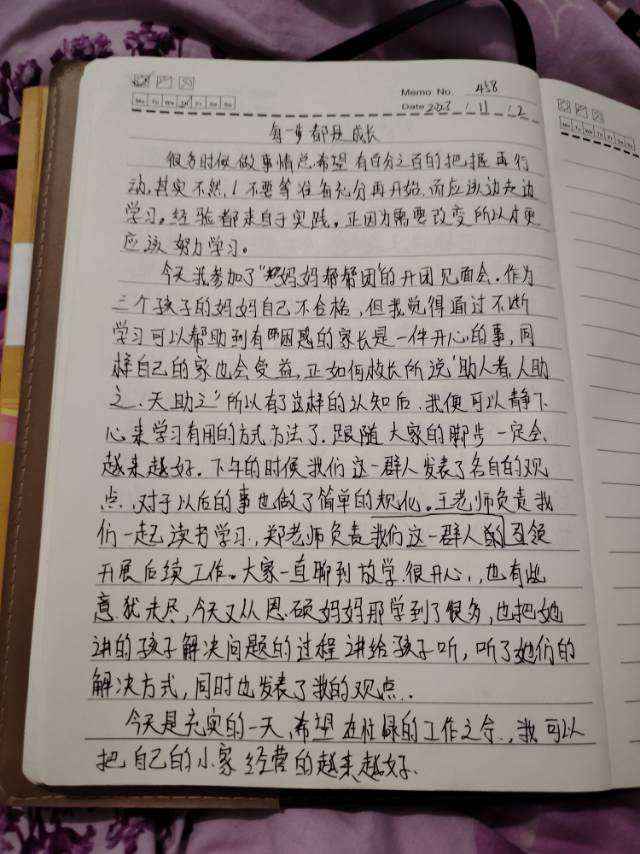 Memo No. 458
Mo Tu We Th Fr Sa Su
Date 2023 / 11 / 2
每一步都是成长
很多时候做事情总希望有百分之百的把握再行
动,其实不然,不要等准备充分再开始,而应该边走边
学习。经验都来自于实践。正因为需要改变所以才更
应该努力学习。
今天我参加了“妈妈帮帮团”的开团见面会。作为
三个孩子的妈妈自己不合格,但我觉得通过不断
学习可以帮助到有困惑的家长是一件开心的事,同
样自己的家也会受益,正如何校长所说“助人者人助
之,天助之”所以有了这样的认知后,我便可以静下
心来学习有用的方式方法了.跟随大家的脚步一定会
越来越好.下午的时候我们这一群人发表了各自的观
点,对于以后的事也做了简单的规化。王老师负责我
们一起读书学习,郑老师负责我们这一群人的引领
开展后续工作。大家一直聊到放学.很开心,也有些
意犹未尽,今天又从恩硕妈妈那学到了很多,也把她
讲的孩子解决问题的过程讲给孩子听,听了她们的
解决方式,同时也发表了我的观点.
今天是充实的一天,希望在忙碌的工作之余,我可以
把自己的小家经营的越来越好.